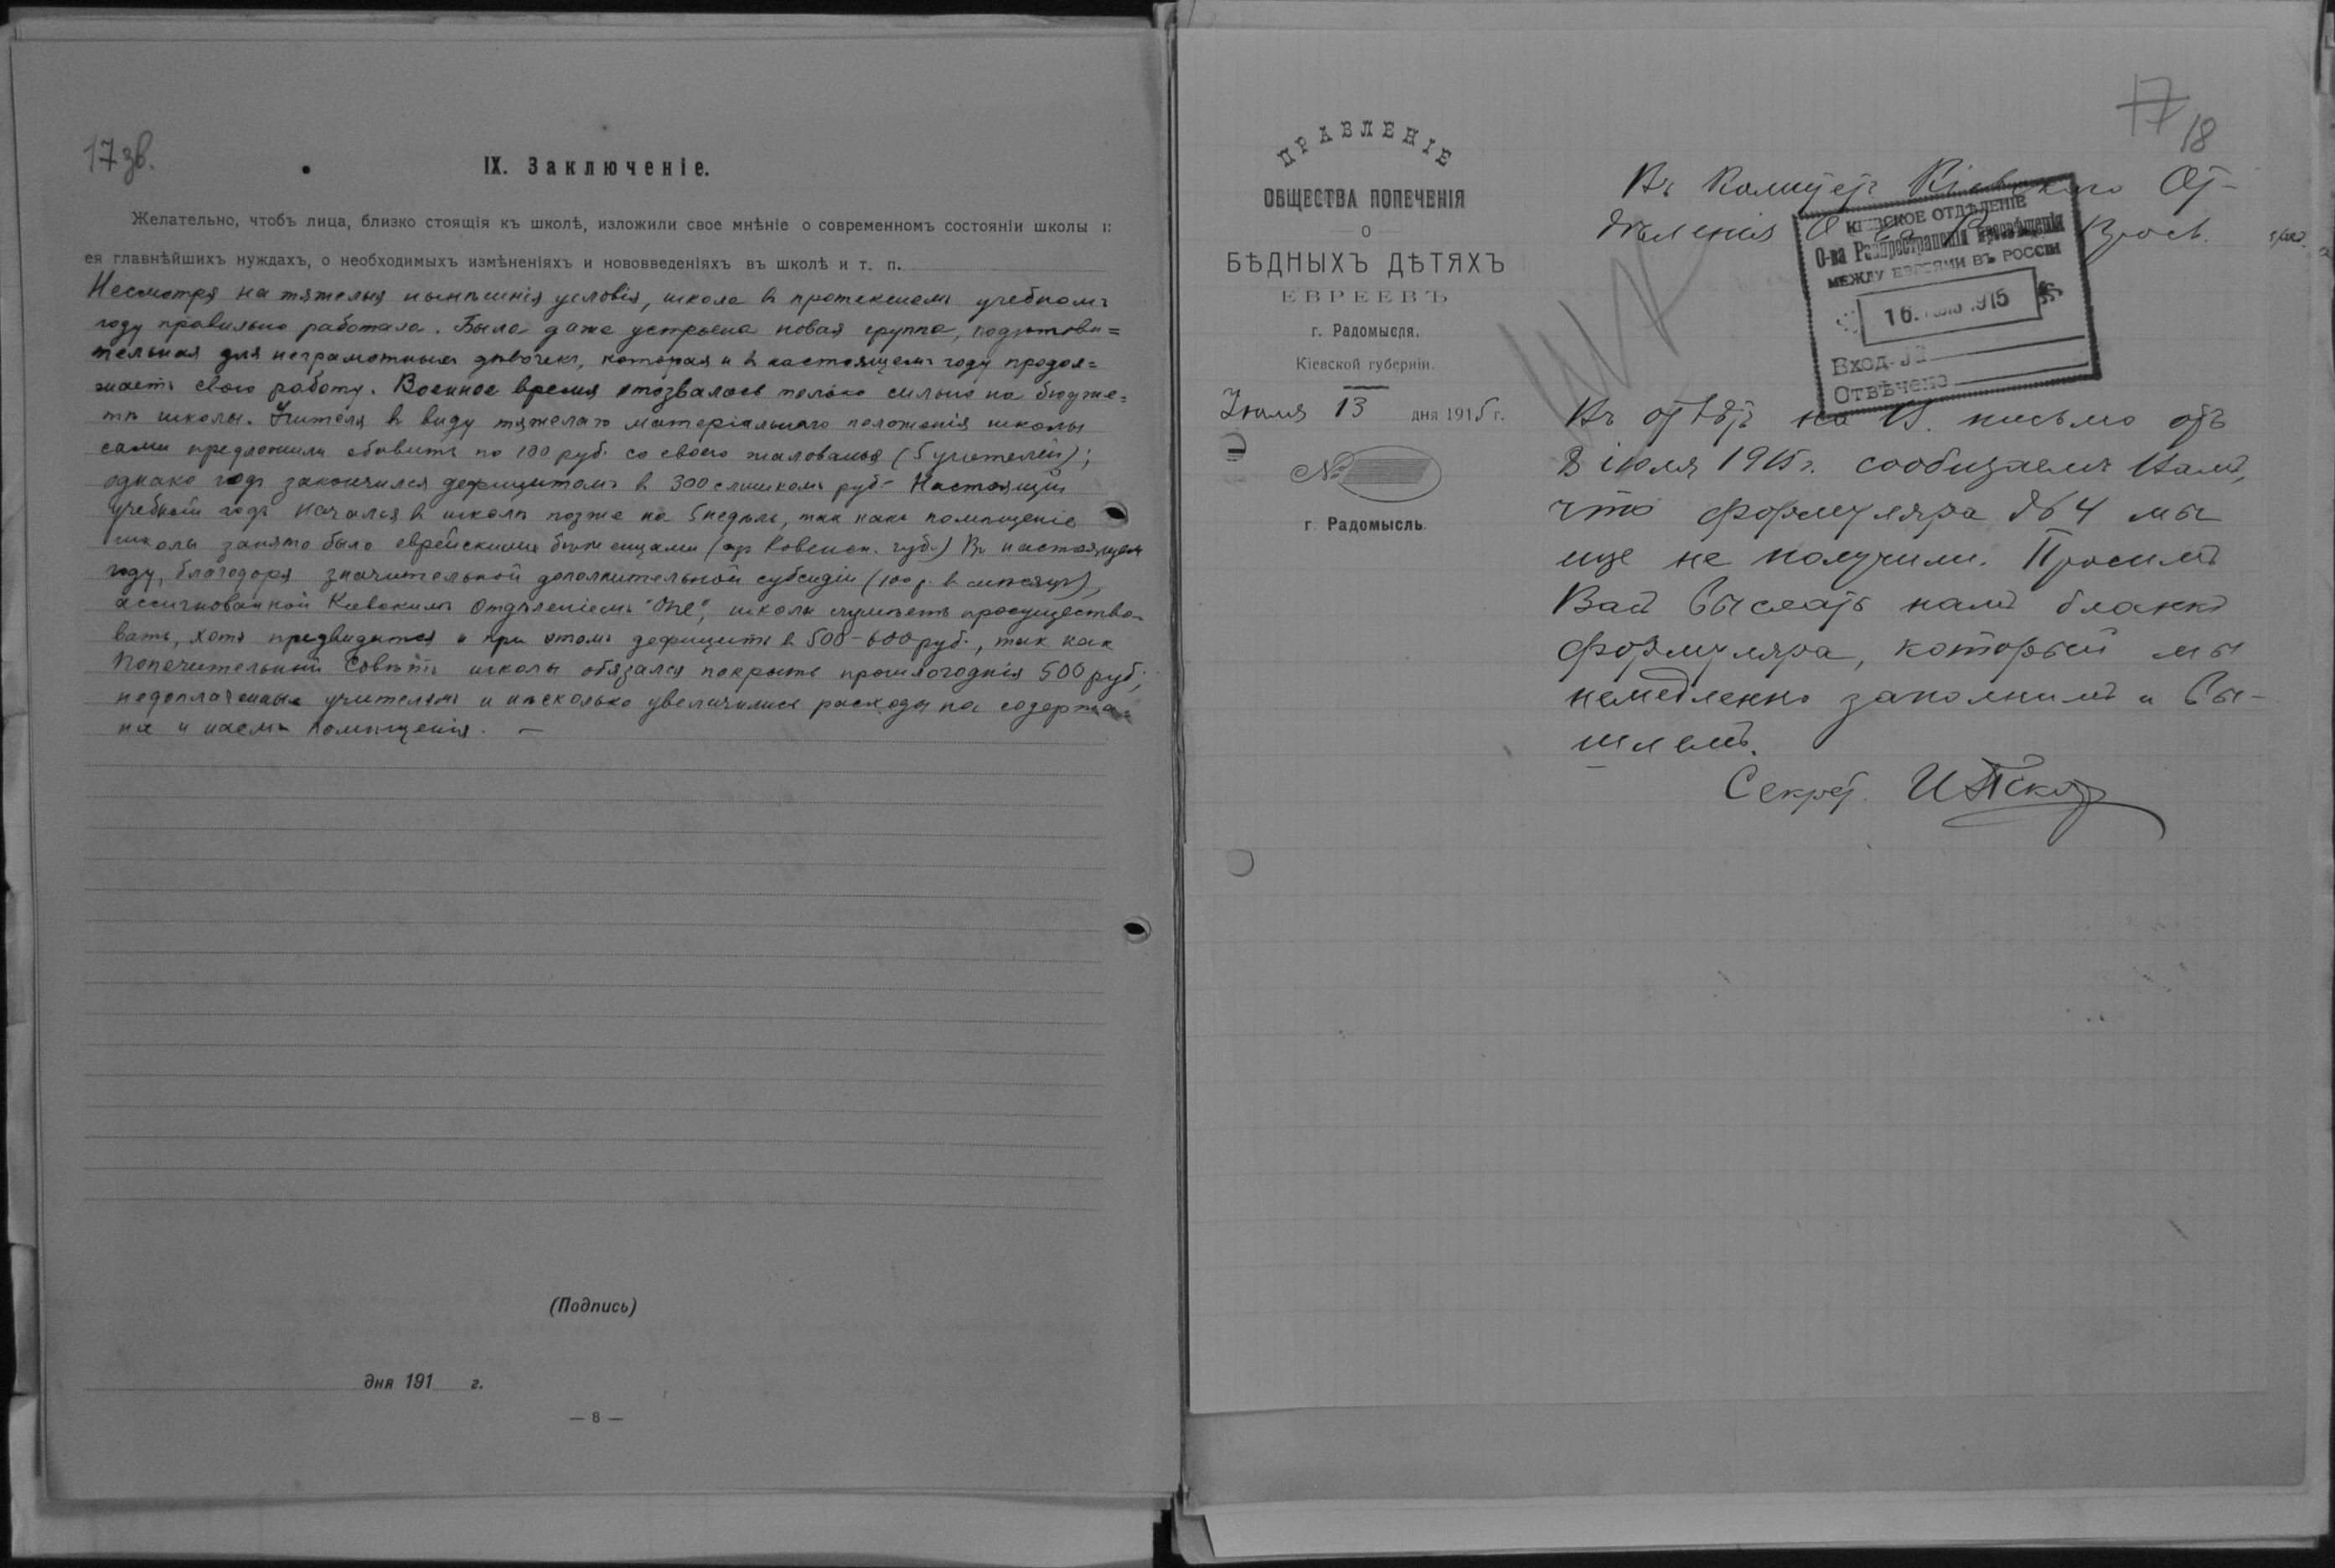 17 зв.
IX. Заключеніе.
Желательно, чтобъ лица, близко стоящія къ школѣ, изложили свое мнѣніе о современномъ состояніи школы и
ея главнѣйшихъ нуждахъ, о необходимыхъ измѣненіяхъ и нововведеніяхъ въ школѣ и т. п.
Несмотря на тяжелыя нынѣшнія условія, школа въ протекшемъ учебномъ
году правильно работала. Была даже устроена новая группа, подготови=
тельная для неграмотныхъ дѣвочекъ, которая и въ настоящемъ году продол=
жаетъ свою работу. Военное время отозвалось только сильно на бюдже=
тѣ школы. Учителя въ виду тяжелаго матеріальнаго положенія школы
сами предложили сбавить по 100 руб. со своего жалованья (5 учителей);
однако годъ закончился дефицитомъ въ 300 слишкомъ руб. - Настоящій
учебный годъ начался въ школѣ позже на 5 недѣль, такъ какъ помѣщеніе
школы занято было еврейскими бѣженцами (изъ Ковенск. губ.) Въ настоящемъ
году, благодаря значительной дополнительной субсидіи (100 р. въ мѣсяцъ),
ассигнованной Кіевскимъ Отдѣленіемъ "Опе", школа сумѣетъ просущество-
вать, хотя предвидится и при этомъ дефицитъ въ 500-600 руб., такъ какъ
Попечительный Совѣтъ школы обязался покрыть прошлогоднія 500 руб.,
недоплаченныя учителямъ и нѣсколько увеличились расходы на содержа=
на и наемъ помѣщенія. -
(Подпись)
дня 191 г.
— 8 —
17 18
ПРАВЛЕНІЕ
ОБЩЕСТВА ПОПЕЧЕНІЯ
О
БѢДНЫХЪ ДѢТЯХЪ
ЕВРЕЕВЪ
г. Радомысля.
Кіевской губерніи.
Іюля 13 дня 1915 г.
№
г. Радомысль.
Въ Комитетъ Кіевскаго От-
дѣленія О-ва Просв.
КІЕВСКОЕ ОТДѢЛЕНІЕ
О-ва Распространенія Просвѣщенія
МЕЖДУ ЕВРЕЯМИ ВЪ РОССІИ
16. 1915
Вход. №
Отвѣчено
Въ отвѣтъ на В. письмо отъ
8 іюля 1915 г. сообщаемъ Вамъ,
что формуляра №4 мы
еще не получили. Просимъ
Вас выслать намъ бланкъ
формуляра, который мы
немедленно заполнимъ и вы-
шлемъ.
Секрет.